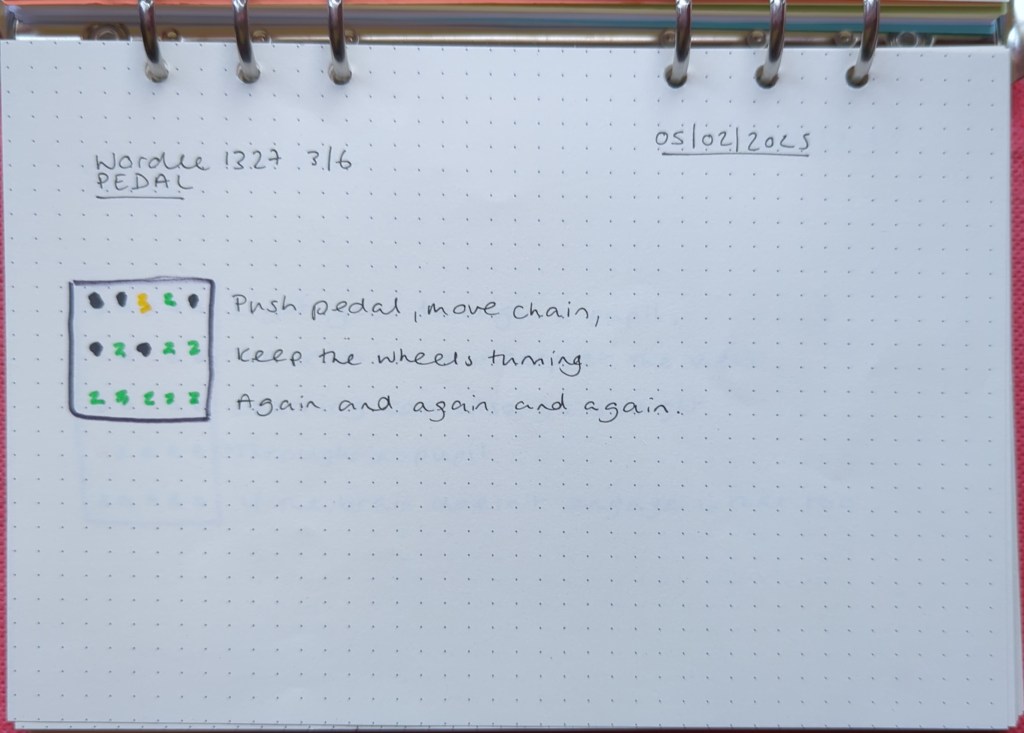 05/02/2025
Wordle 1327 3/6
PEDAL
Push pedal, move chain,
Keep the wheels turning.
Again and again and again.